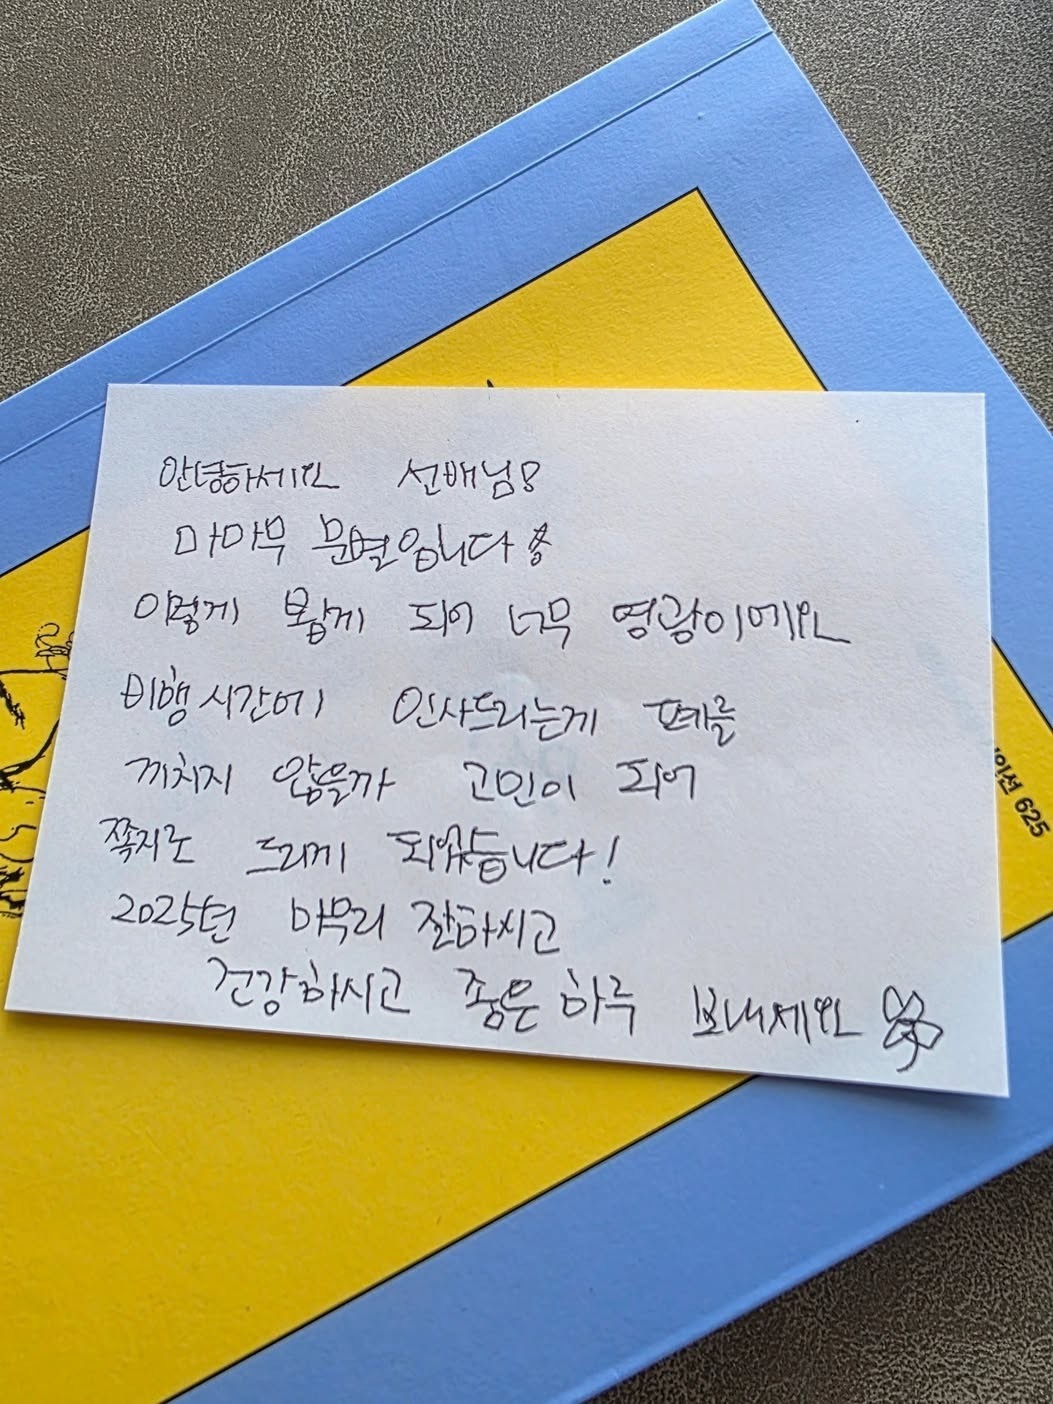 안녕하세요 선배님!
마마무 문별입니다
이렇게 뵙게 되어 너무 영광이에요
비행시간에 인사드리는게 폐를
끼치지 않을까 고민이 되어
쪽지로 드리게 되었습니다!
2025년 마무리 잘하시고
건강하시고 좋은 하루 보내세요
인선 625